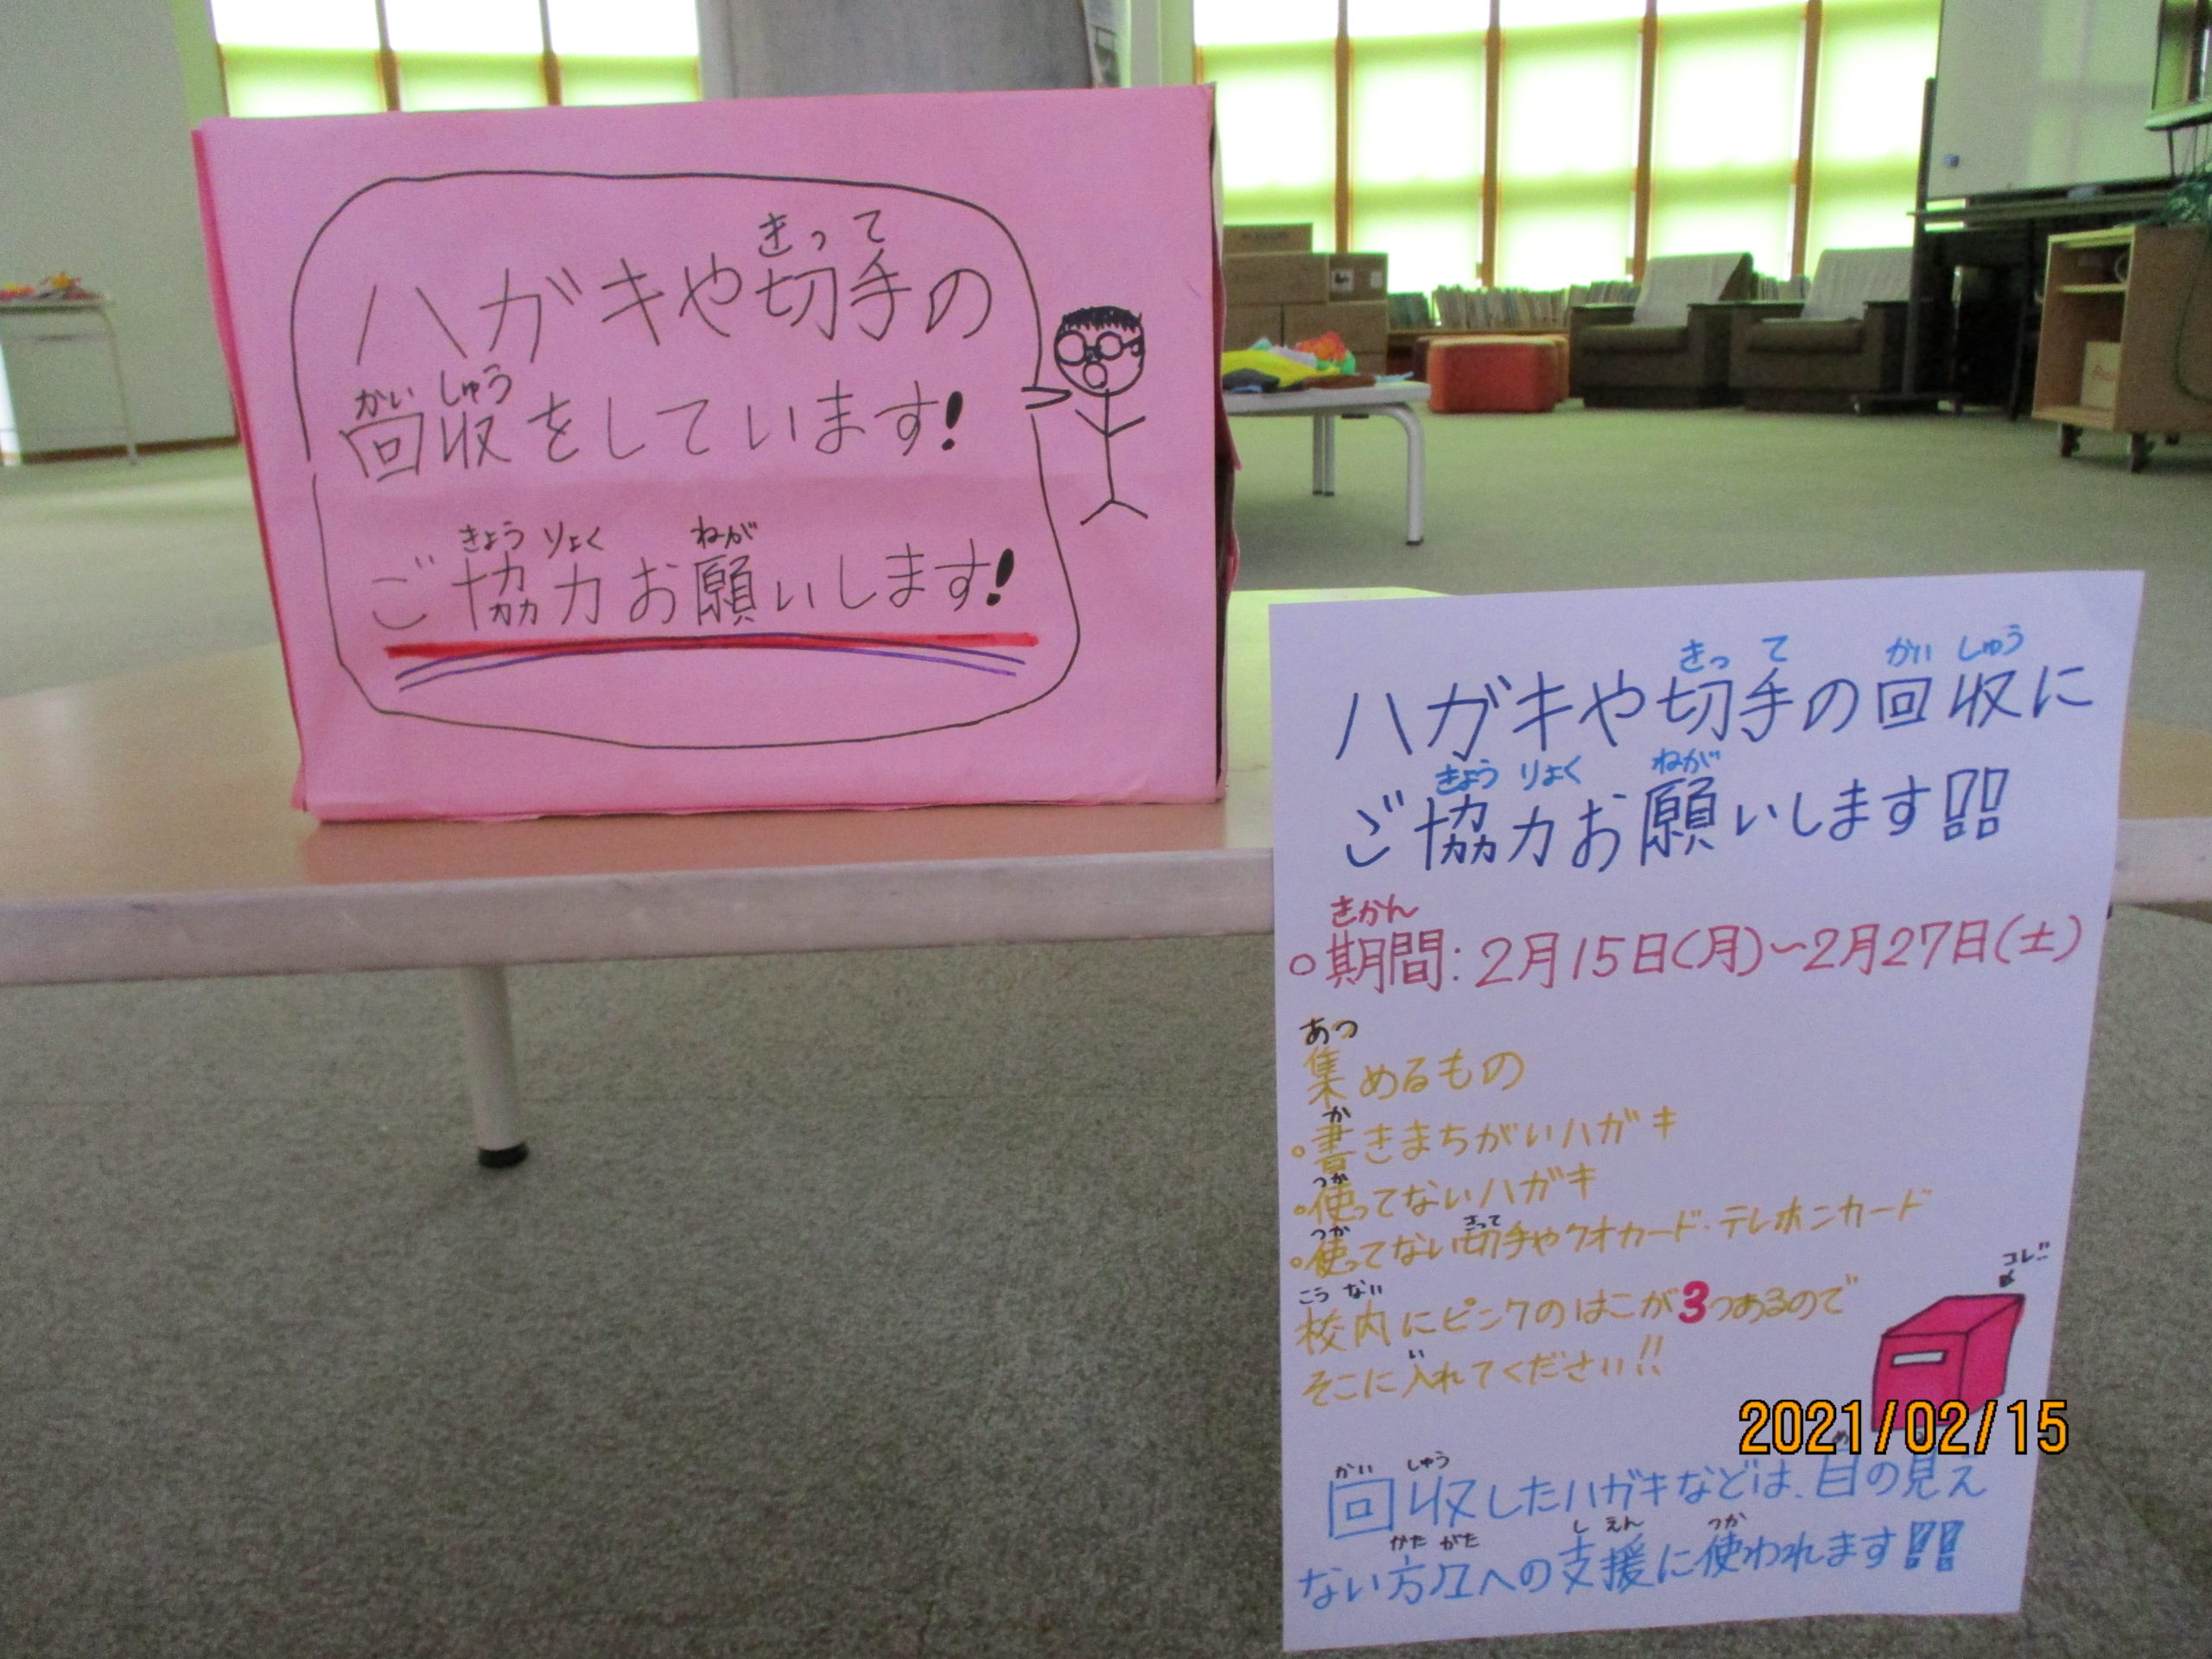 ハガキや切手の
きって
回収をしています!
かいしゅう
ご協力お願いします!
きょうりょく ねが
ハガキや切手の回収に
きって かいしゅう
ご協力お願いします!!
きょうりょく ねが
○期間:2月15日(月)~2月27日(土)
きかん
集めるもの
あつ
○書きまちがいハガキ
か
○使ってないハガキ
つか
○使ってない切手やクオカード・テレホンカード
つか きって
校内にピンクのはこが3つあるので
こうない
コレ!!
そこに入れてください!!
い
2021/02/15
回収したハガキなどは、目の見え
かいしゅう
ない方々への支援に使われます!!
かたがた しえん つか